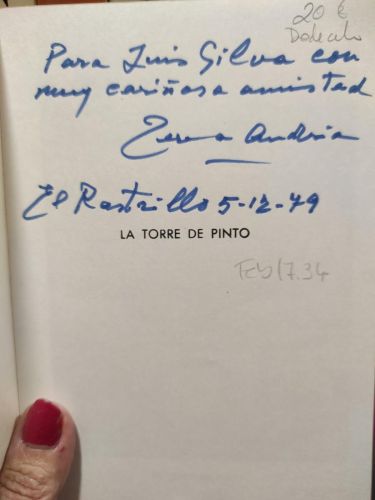 20 €
Dedicado
Para Luis Silva con
muy cariñosa amistad
Teresa Andria
El Rastrillo 5-12-79
LA TORRE DE PINTO